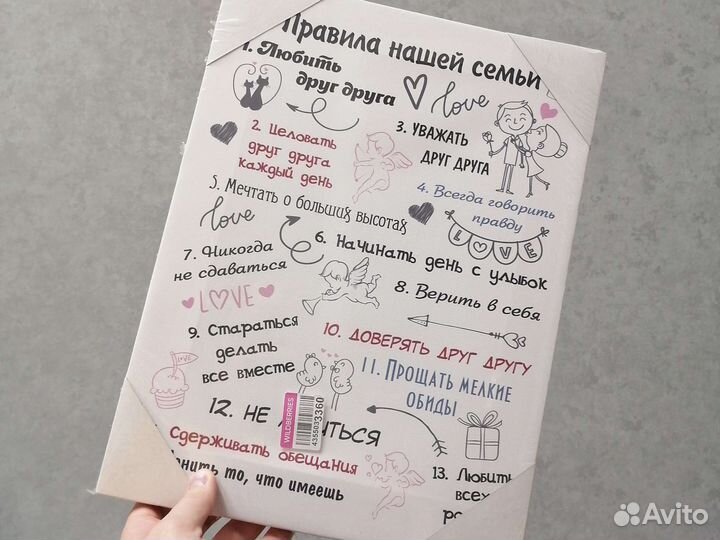 Правила нашей семьи
1. Любить
друг друга
love
2. Целовать
друг друга
каждый день
3. УВАЖАТЬ
ДРУГ ДРУГА
4. Всегда говорить
правду
5. Мечтать о больших высотах
love
LOVE
6. Начинать день с улыбок
7. Никогда
не сдаваться
LOVE
8. Верить в себя
9. Стараться
делать
все вместе
LOVE
10. ДОВЕРЯТЬ ДРУГ ДРУГУ
11. Прощать мелкие
обиды
12. НЕ
WILDBERRIES
4355033360
Сдерживать обещания
то, что имеешь
13. Любить
всех
Avito